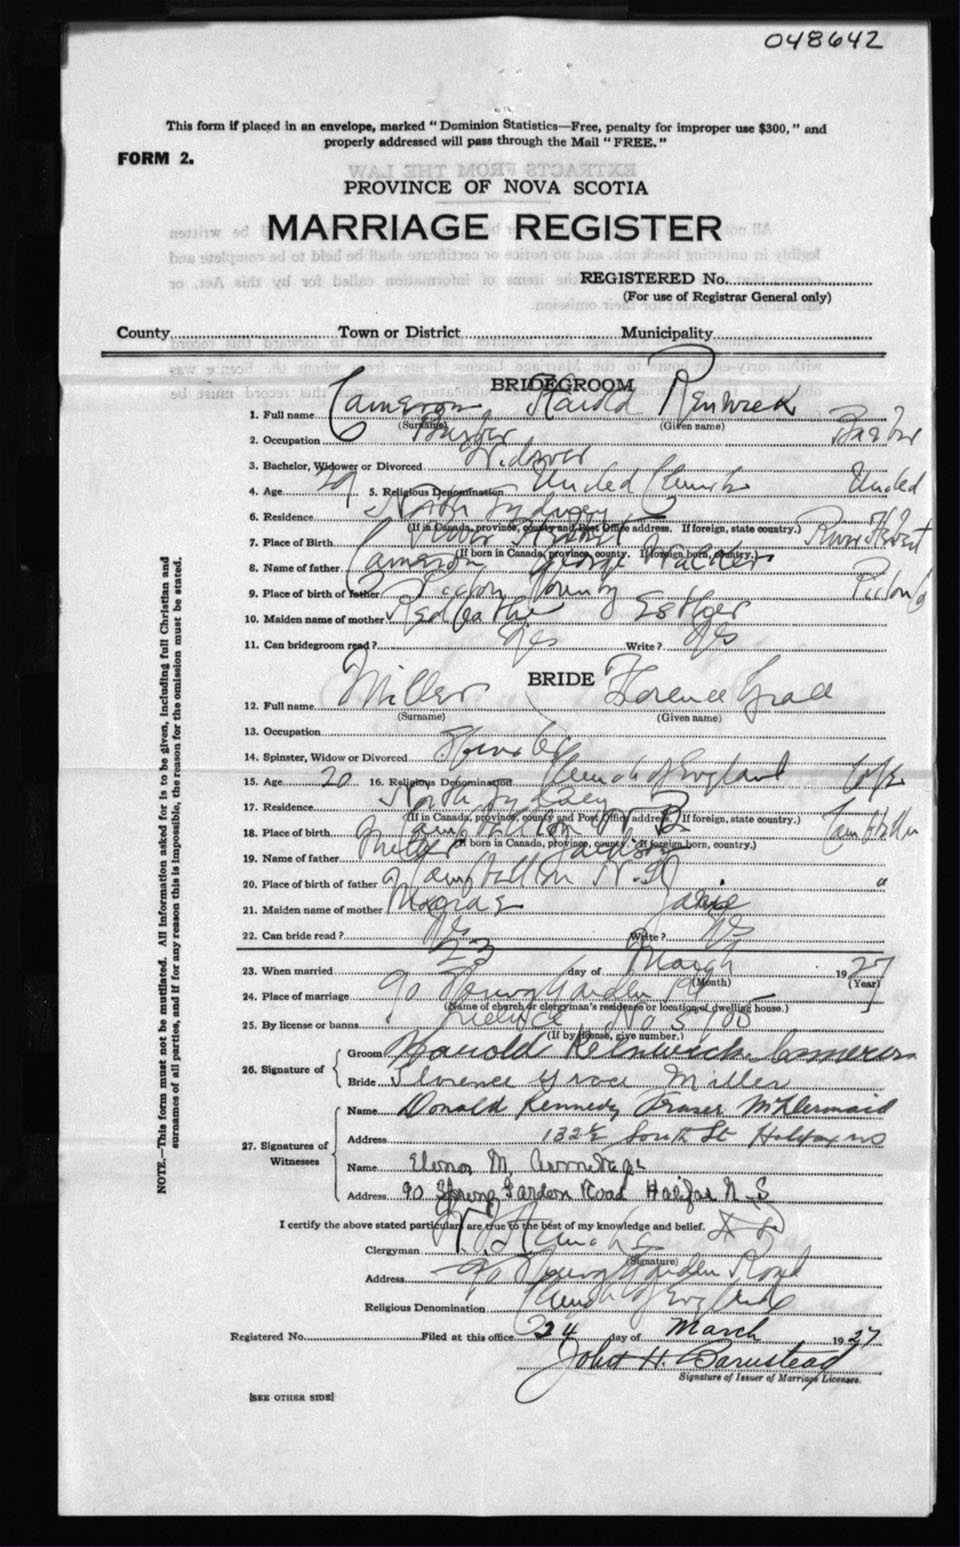 048642
This form if placed in an envelope, marked "Dominion Statistics—Free, penalty for improper use $300," and
properly addressed will pass through the Mail "FREE."
FORM 2.
PROVINCE OF NOVA SCOTIA
MARRIAGE REGISTER
REGISTERED No.
(For use of Registrar General only)
County Town or District Municipality
BRIDEGROOM
1. Full name Cameron Harold Renwick
(Surname) (Given name)
2. Occupation Barber Barber
3. Bachelor, Widower or Divorced Widower
4. Age 29 5. Religious Denomination United Church United
6. Residence North Sydney
(If in Canada, province, county and Post Office address. If foreign, state country.)
7. Place of Birth River Hebert River Hebert
(If born in Canada, province, county. If foreign born, country.)
8. Name of father Cameron George
9. Place of birth of father Pictou County Pictou Co
10. Maiden name of mother Esther
11. Can bridegroom read? Yes Write? Yes
BRIDE
12. Full name Miller Florence Grace
(Surname) (Given name)
13. Occupation
14. Spinster, Widow or Divorced Spinster
15. Age 20 16. Religious Denomination Church of England C of E
17. Residence North Sydney
(If in Canada, province, county and Post Office address. If foreign, state country.)
18. Place of birth Campbellton N B
(If born in Canada, province, county. If foreign born, country.)
19. Name of father Miller
20. Place of birth of father Campbellton N. B "
21. Maiden name of mother Janie
22. Can bride read? Yes Write? Yes
23. When married 23 day of March 1927
(Month) (Year)
24. Place of marriage 90 Spring Garden Rd
(Name of church or clergyman's residence or location of dwelling house.)
25. By license or banns License No
(If by license, give number.)
26. Signature of
Groom Harold Renwick Cameron
Bride Florence Grace Miller
27. Signatures of Witnesses
Name Donald Kennedy Fraser McDermaid
Address 132½ South St Halifax NS
Name Elenor M. Armitage
Address 90 Spring Garden Road Halifax N. S
I certify the above stated particulars are true to the best of my knowledge and belief.
Clergyman
(Signature)
Address 90 Spring Garden Road
Religious Denomination Church of England
Registered No. Filed at this office 24 day of March 1927
John H. Barnstead
Signature of Issuer of Marriage Licenses.
[SEE OTHER SIDE]
NOTE.—This form must not be mutilated. All information asked for is to be given, including full Christian and
surnames of all parties, and if for any reason this is impossible, the reason for the omission must be stated.